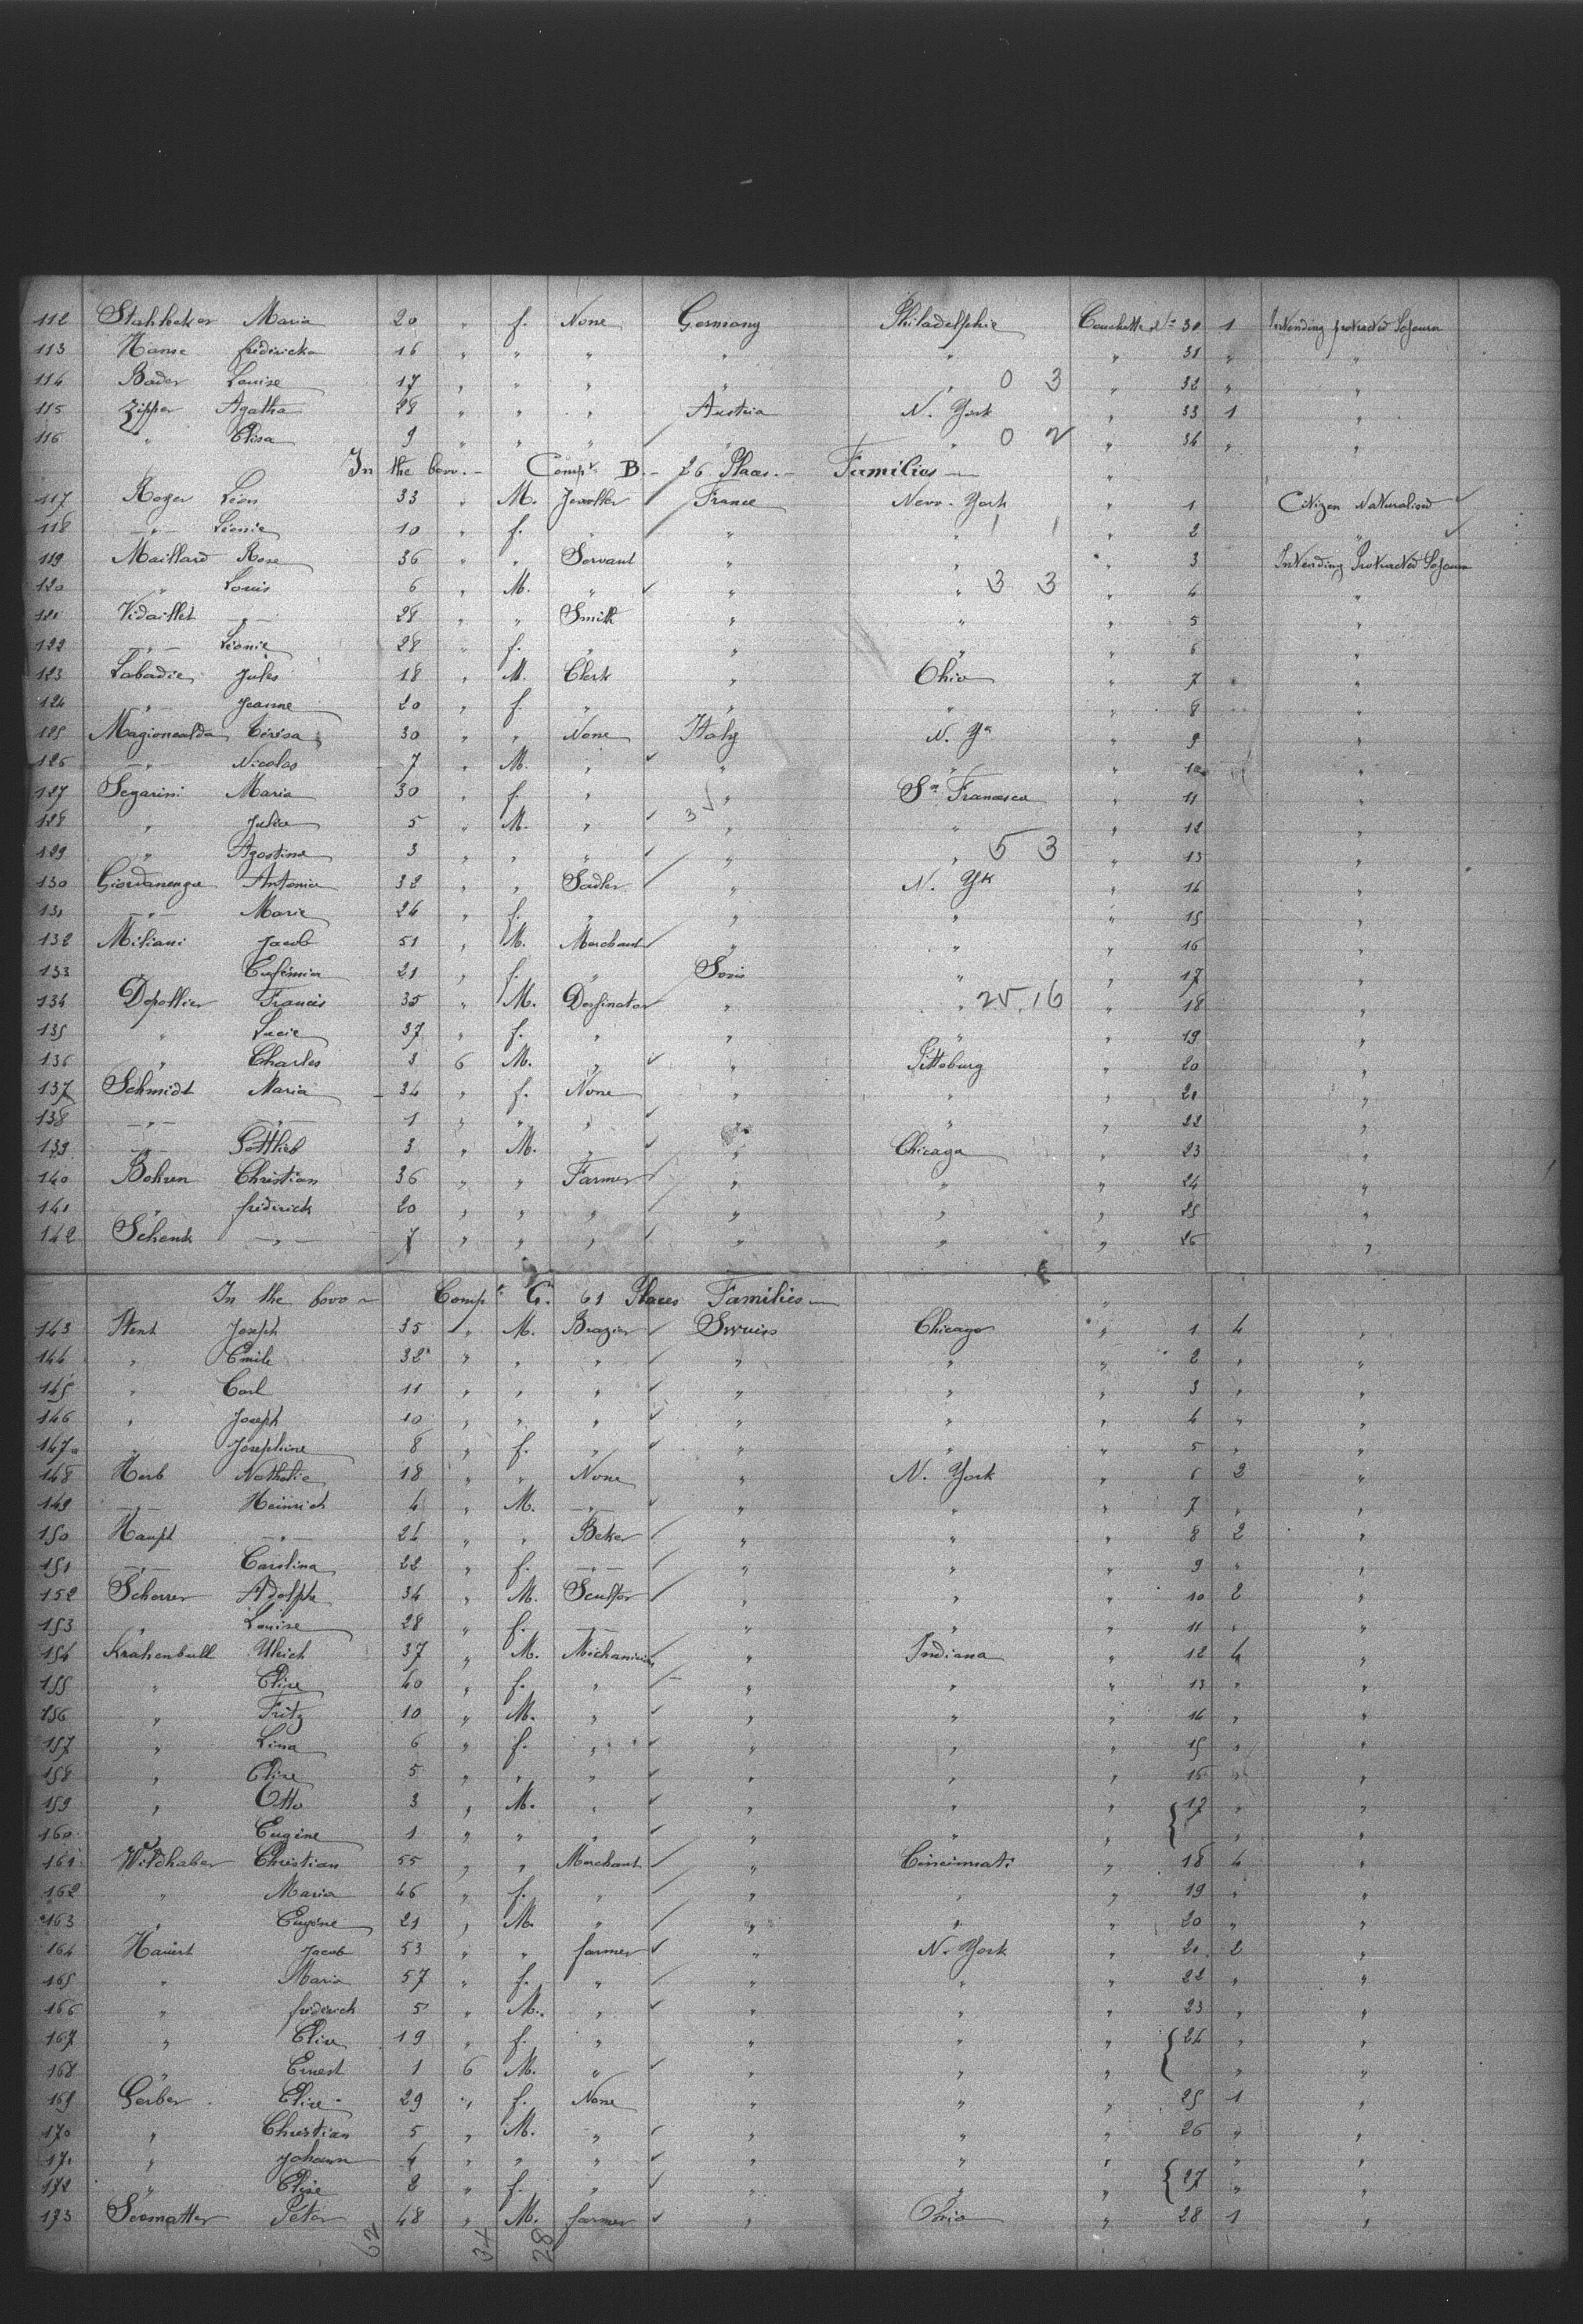 112 Stahlecker Maria 20 " f. None Germany Philadelphie Couchette N° 30 1 Intending protracted Sojourn
113 Hanse fridericka 16 " " " " " " 31 " "
114 Bader Louise 17 " " " " " 0 3 " 32 " "
115 Zipper Agatha 28 " " " Austria N. York " 33 1 "
116 " Elisa 9 " " " " " 0 2 " 34 " "
In the bow. - Compt B. - 26 Places. - Families "
117 Roger Léon 33 " M. Jeweller France New-York " 1 Citizen Naturalised
118 -"- Léonie 10 " f. " " " 1 1 " 2 "
119 Maillard Rose 36 " " Servant " " " 3 Intending Protracted Sojourn
120 " Louis 6 " M. " " " 3 3 " 4 "
121 Vidaillet -"- 28 " " Smith " " " 5 "
122 -"- Léonie 28 " f. " " " " 6 "
123 Labadie Jules 18 " M. Clerk " Ohio " 7 "
124 " Jeanne 20 " f. " " " " 8 "
125 Térésa 30 " " None Italy N. Yk " 9 "
126 -"- Nicolas 7 " M. " " " " 10 "
127 Segarini Maria 30 " f. " " Sn Francisco " 11 "
128 " Julio 5 " M. " 3 " " " 12 "
129 " Agostino 3 " " " " " 5 3 " 13 "
130 Giordanengo Antonio 32 " " Sadler " N. Yk " 14 "
131 -"- Marie 24 " f. " " " " 15 "
132 Miliani Jacob 51 " M. Merchant " " " 16 "
133 " Eufémia 21 " f. " " " 17 "
134 Depollier Francis 35 " M. " " 25 16 " 18 "
135 " Lucie 37 " f. " " " " 19 "
136 " Charles 3 6 M. " " Pittsburg " 20 "
137 Schmidt Maria 34 " f. None " " " 21 "
138 -"- -"- 1 " " " " " " 22 "
139 -"- Gottlieb 3 " M. " " Chicago " 23 "
140 Bohren Christian 36 " " Farmer " " " 24 "
141 " friderick 20 " " " " " " 25 "
142 Schenk -"- 7 " " " " " " 26 "
In the bow Compt C. 61 Places Families "
143 Joseph 35 " M. Brazier Swuiss Chicago " 1 4 "
144 " Emile 32 " " " " " " 2 " "
145 " Carl 11 " " " " " " 3 " "
146 " Joseph 10 " " " " " " 4 " "
147 " Joséphine 8 " f. " " " " 5 " "
148 Herb Nathalie 18 " " None " N. York " 6 2 "
149 -"- Heinrich 4 " M. -"- " " " 7 " "
150 Haupt -"- 24 " " Beker " " " 8 2 "
151 -"- Carolina 22 " f. -"- " " " 9 " "
152 Scherrer Adolph 34 " M. Sculptor " " " 10 2 "
153 " Louise 28 " f. -"- " " " 11 " "
154 Krahenbull Ulrich 37 " M. Michanician " Indiana " 12 4 "
155 " Elise 40 " f. " " " " 13 " "
156 " Fritz 10 " M. " " " " 14 " "
157 " Lina 6 " f. " " " " 15 " "
158 " Elise 5 " " " " " " 16 " "
159 " Otto 3 " M. " " " " 17 " "
160 " Eugène 1 " " " " " " " "
161 Wildhaber Christian 55 " " Merchant " Cincinnati " 18 4 "
162 " Maria 46 " f. " " " " 19 " "
163 " Eugène 21 " M. " " " " 20 " "
164 Hauert Jacob 53 " " farmer " N. York " 21 2 "
165 " Maria 57 " f. " " " " 22 " "
166 " friderich 5 " M. " " " " 23 " "
167 " Elise 19 " f. " " " " 24 " "
168 " Ernest 1 6 M. " " " " " "
169 Gerber Elise 29 " f. None " " " 25 1 "
170 " Christian 5 " M. " " " " 26 " "
171 " Johann 4 " " " " " " " "
172 " Elise 2 " f. " " " " 27 " "
173 Seematter Peter 48 " M. farmer " " 28 1 "
62 34 28